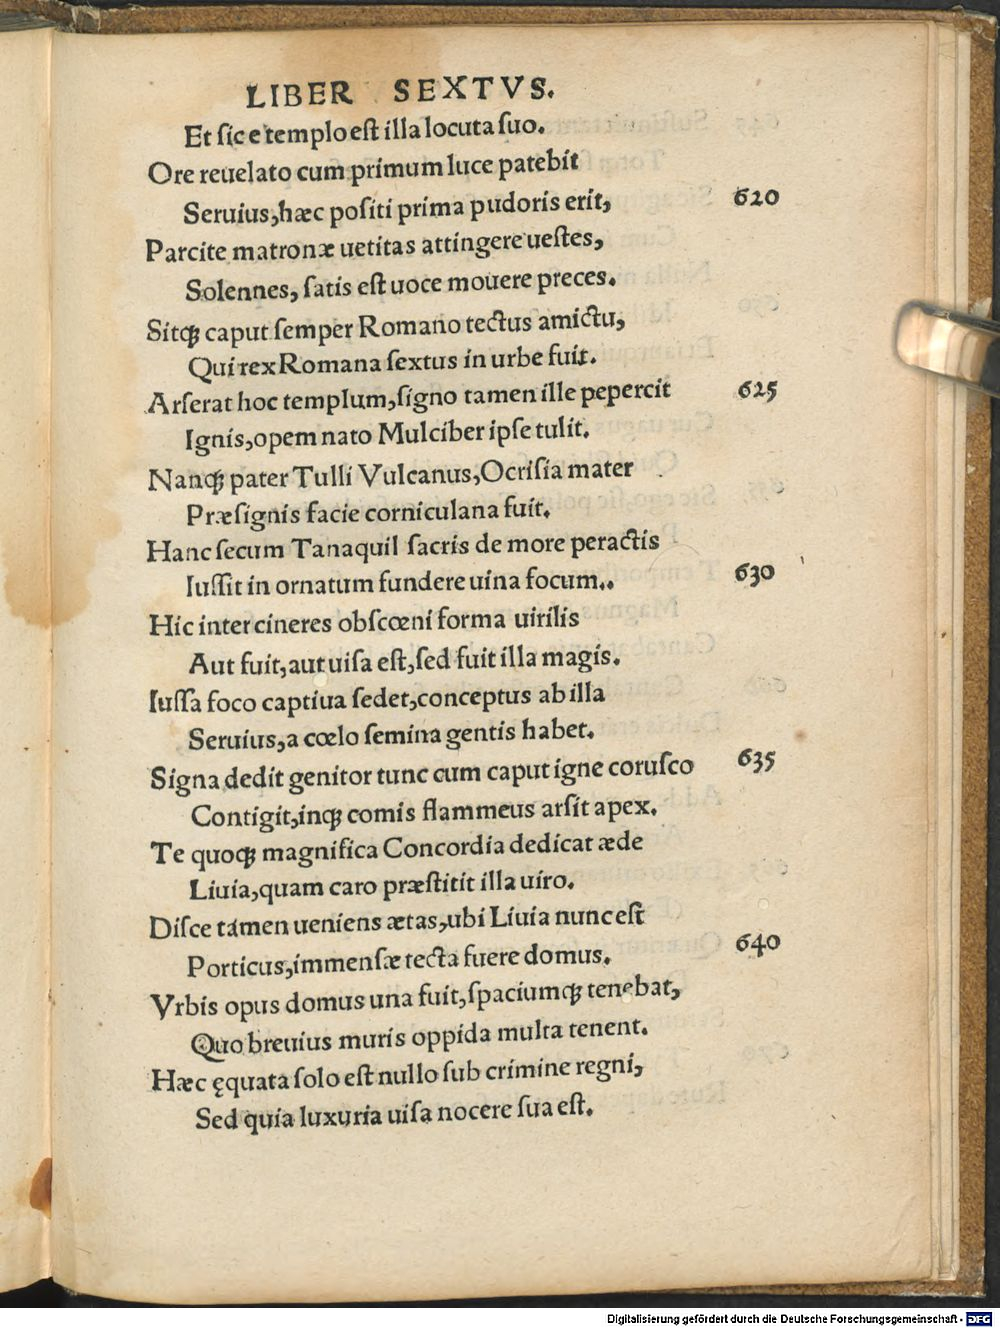 LIBER SEXTVS.
Et ſic e templo eſt illa locuta ſuo.
Ore reuelato cum primum luce patebit
Seruius, hæc poſiti prima pudoris erit, 620
Parcite matronæ uetitas attingere ueſtes,
Solennes, ſatis eſt uoce mouere preces.
Sitqꝫ caput ſemper Romano tectus amictu,
Qui rex Romana ſextus in urbe fuit.
Arſerat hoc templum, ſigno tamen ille pepercit 625
Ignis, opem nato Mulciber ipſe tulit.
Nanqꝫ pater Tulli Vulcanus, Ocriſia mater
Præſignis facie corniculana fuit.
Hanc ſecum Tanaquil ſacris de more peractis
Iuſſit in ornatum fundere uina focum.. 630
Hic inter cineres obſcœni forma uirilis
Aut fuit, aut uiſa eſt, ſed fuit illa magis.
Iuſſa foco captiua ſedet, conceptus ab illa
Seruius, a cœlo ſemina gentis habet.
Signa dedit genitor tunc cum caput igne coruſco 635
Contigit, inqꝫ comis flammeus arſit apex.
Te quoqꝫ magnifica Concordia dedicat æde
Liuia, quam caro præſtitit illa uiro.
Diſce tamen ueniens ætas, ubi Liuia nunc eſt
Porticus, immenſæ tecta fuere domus. 640
Vrbis opus domus una fuit, ſpaciumqꝫ tenebat,
Quo breuius muris oppida multa tenent.
Hæc ęquata ſolo eſt nullo ſub crimine regni,
Sed quia luxuria uiſa nocere ſua eſt.
Digitalisierung gefördert durch die Deutsche Forschungsgemeinschaft - DFG